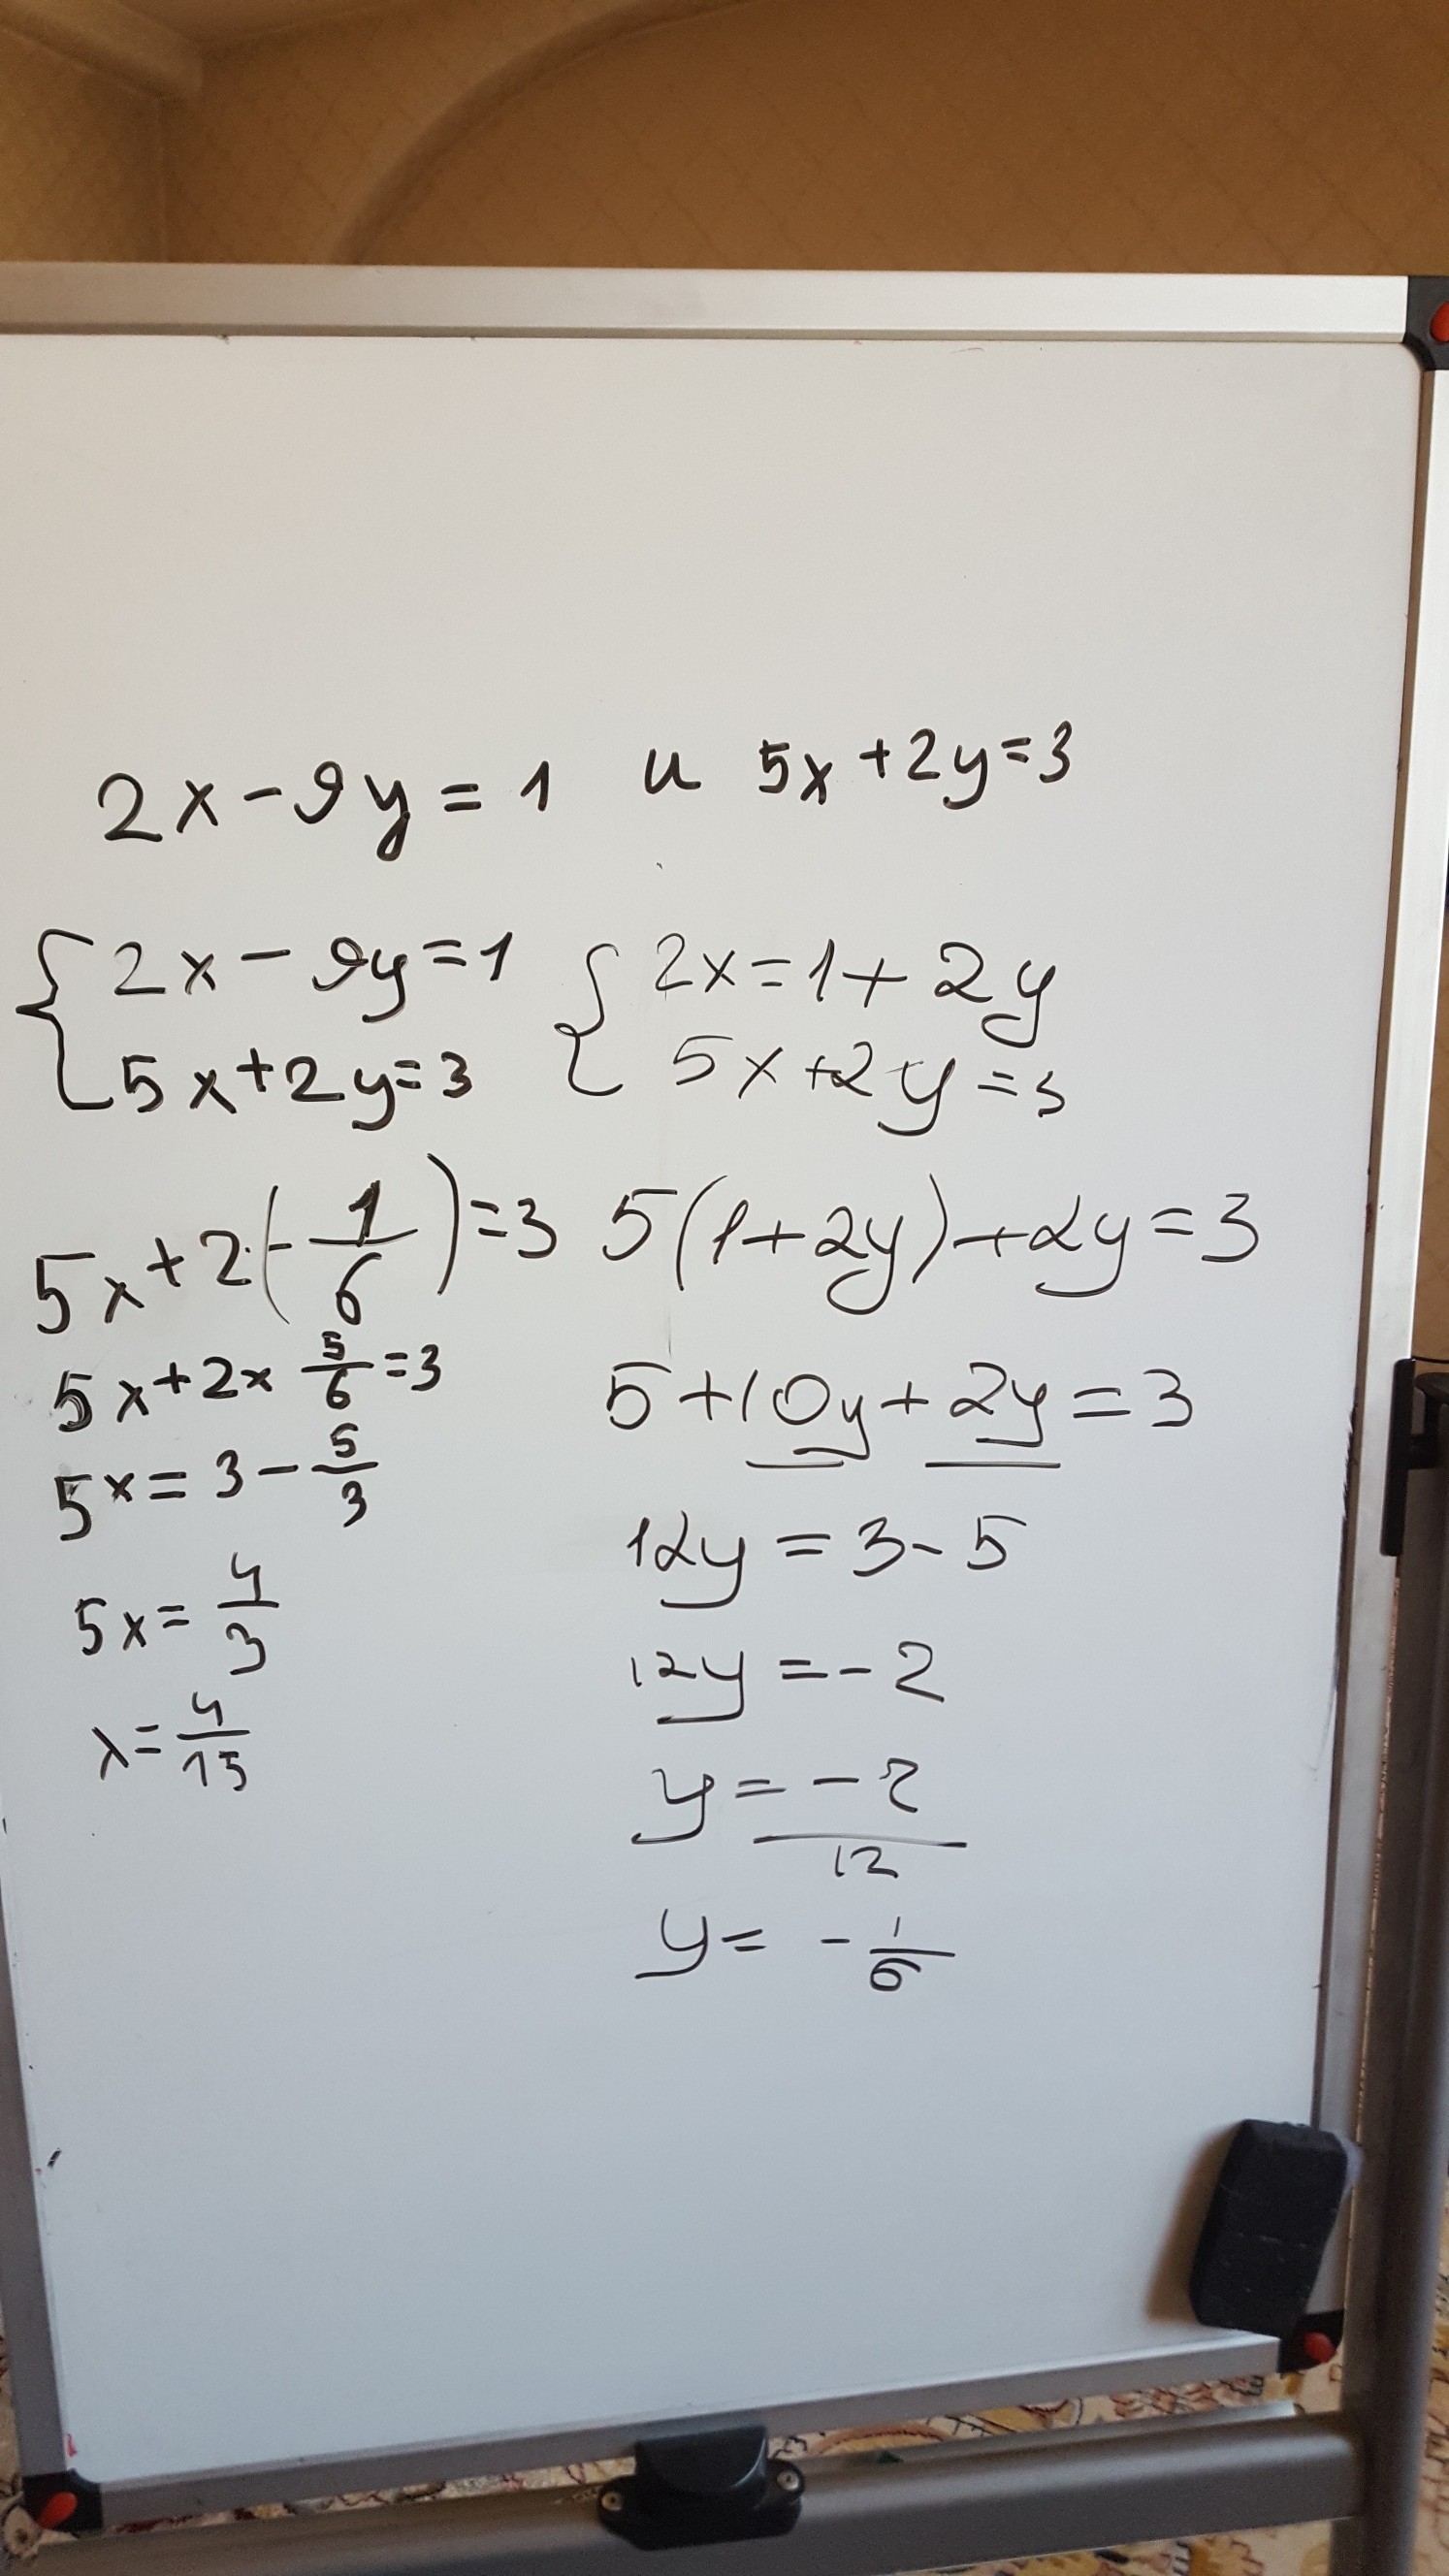 2x - 9y = 1 и 5x + 2y = 3
{ 2x - 9y = 1
5x + 2y = 3
{ 2x = 1 + 2y
5x + 2y = 3
5x + 2·(- 1/6) = 3
5x + 2x 5/6 = 3
5x = 3 - 5/3
5x = 4/3
x = 4/15
5(1 + 2y) + 2y = 3
5 + 10y + 2y = 3
12y = 3 - 5
12y = - 2
y = - 2/12
y = - 1/6